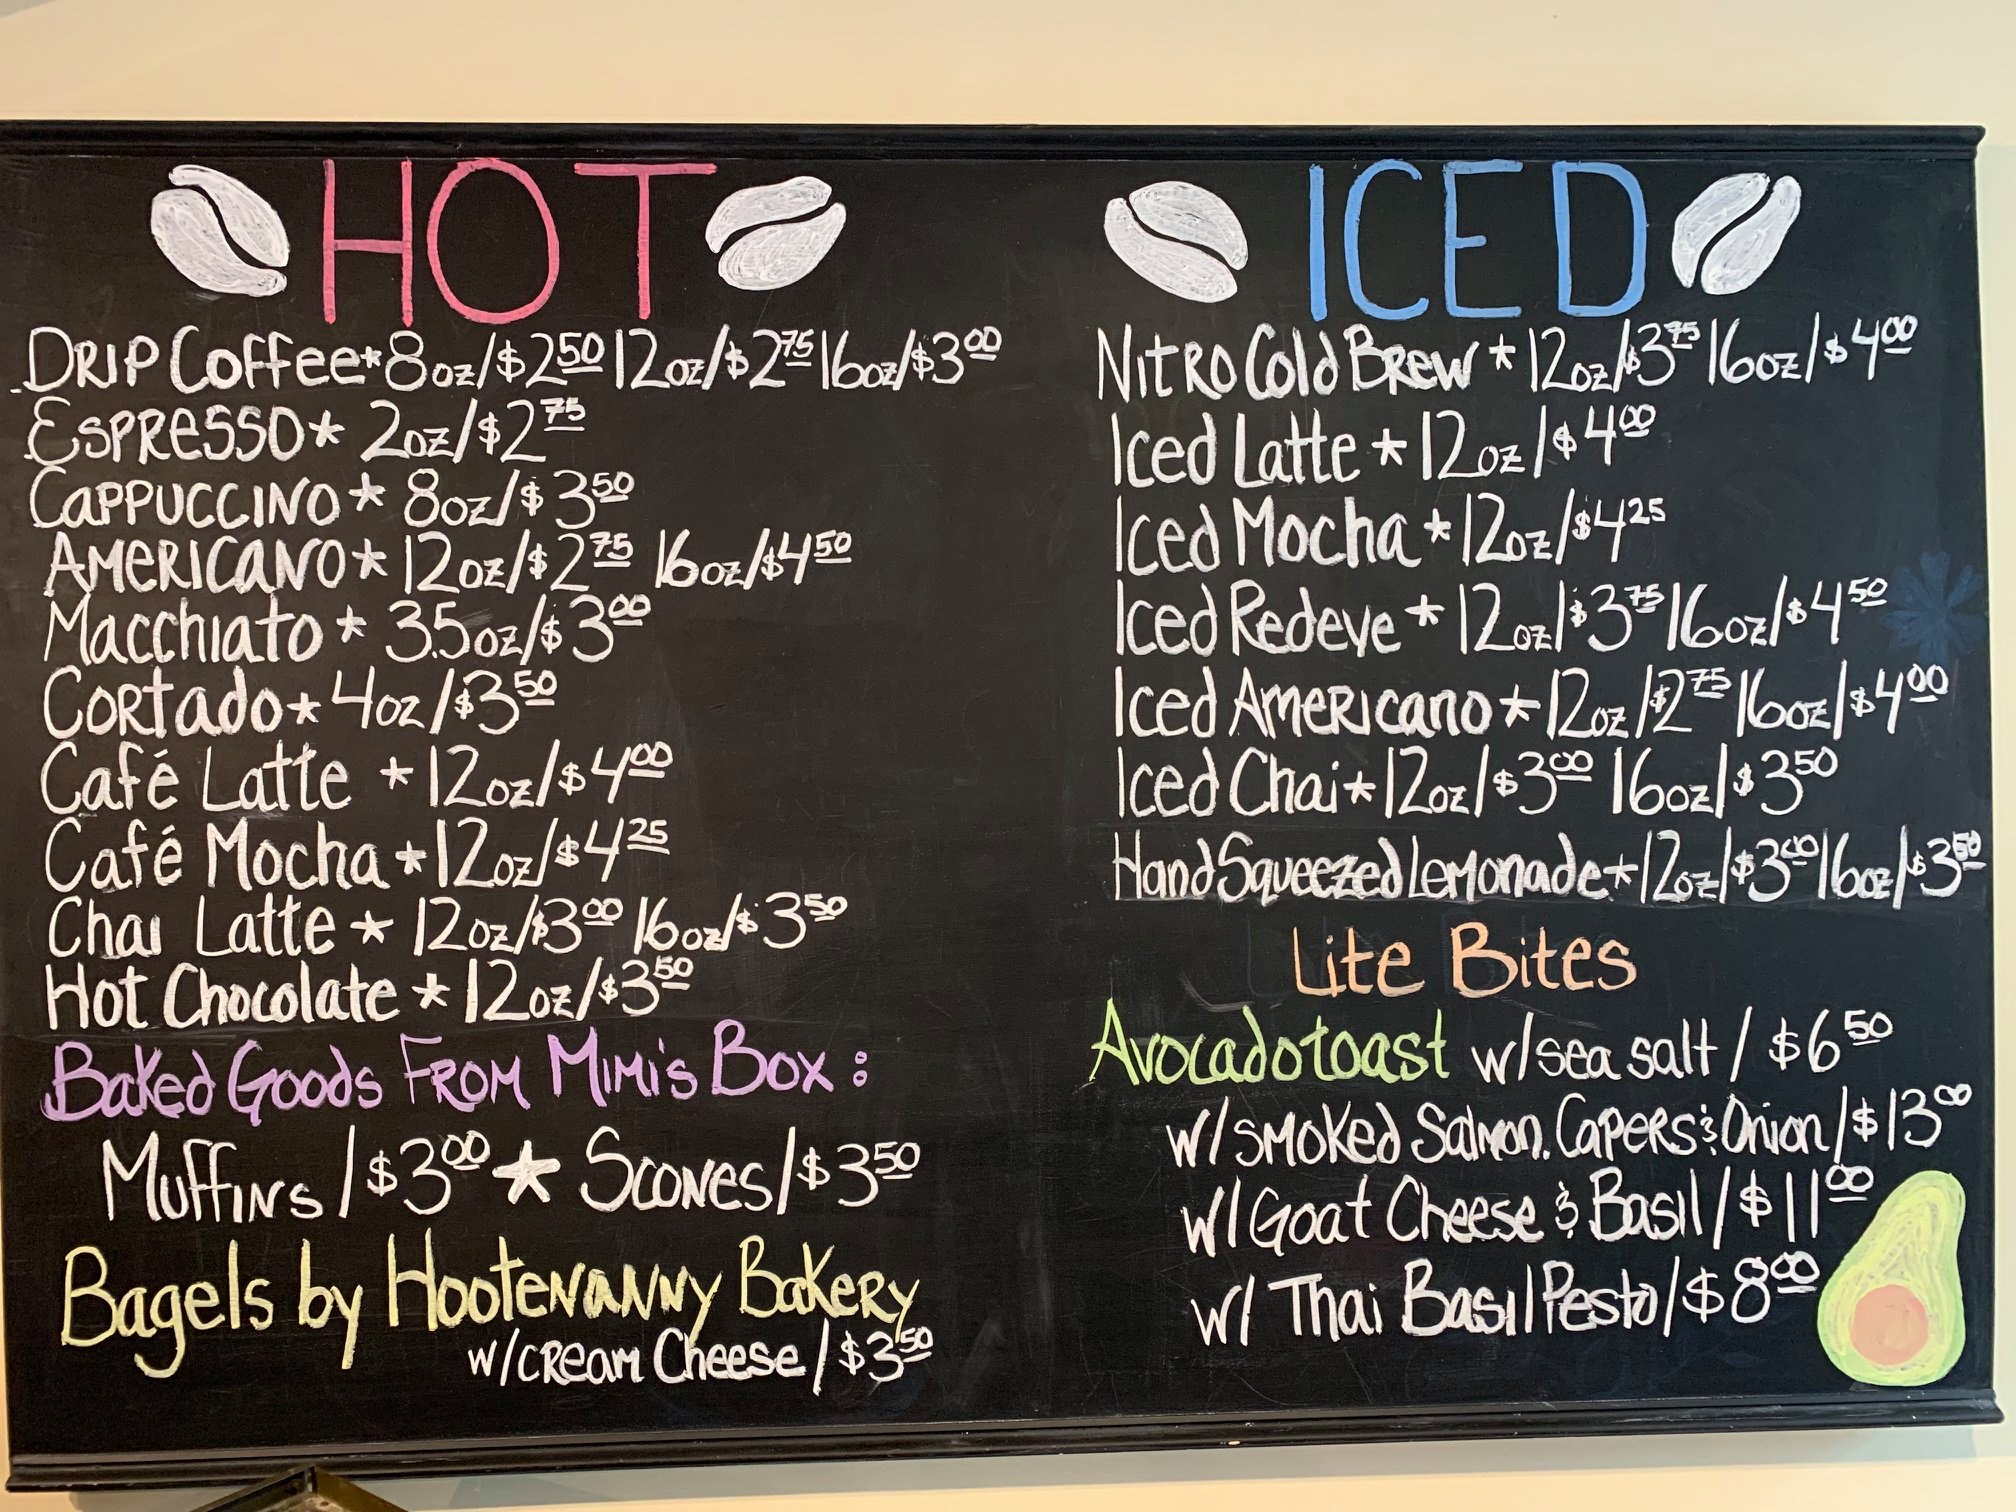 HOT
DRIP Coffee*8oz/$2.50 12oz/$2.75 16oz/$3.00
ESPRESSO* 2oz/$2.75
CAPPUCCINO* 8oz/$3.50
AMERICANO* 12oz/$2.75 16oz/$4.50
Macchiato* 3.5oz/$3.00
CORtado* 4oz/$3.50
Café Latte *12oz/$4.00
Café Mocha*12oz/$4.25
Chai Latte* 12oz/$3.00 16oz/$3.50
Hot Chocolate* 12oz/$3.50
Baked Goods From Mimi's Box:
Muffins/$3.00 * Scones/$3.50
Bagels by Hootenanny Bakery
w/cream Cheese/$3.50
ICED
Nitro Cold Brew*12oz/$3.75 16oz/$4.00
Iced Latte*12oz/$4.00
Iced Mocha*12oz/$4.25
Iced Redeye*12oz/$3.75 16oz/$4.50
Iced Americano*12oz/$2.75 16oz/$4.00
Iced Chai*12oz/$3.00 16oz/$3.50
Hand Squeezed Lemonade*12oz/$3.00 16oz/$3.50
Lite Bites
Avocado toast w/sea salt/$6.50
w/smoked Salmon, Capers & Onion/$13.00
w/Goat Cheese & Basil/$11.00
w/ Thai Basil Pesto/$8.00